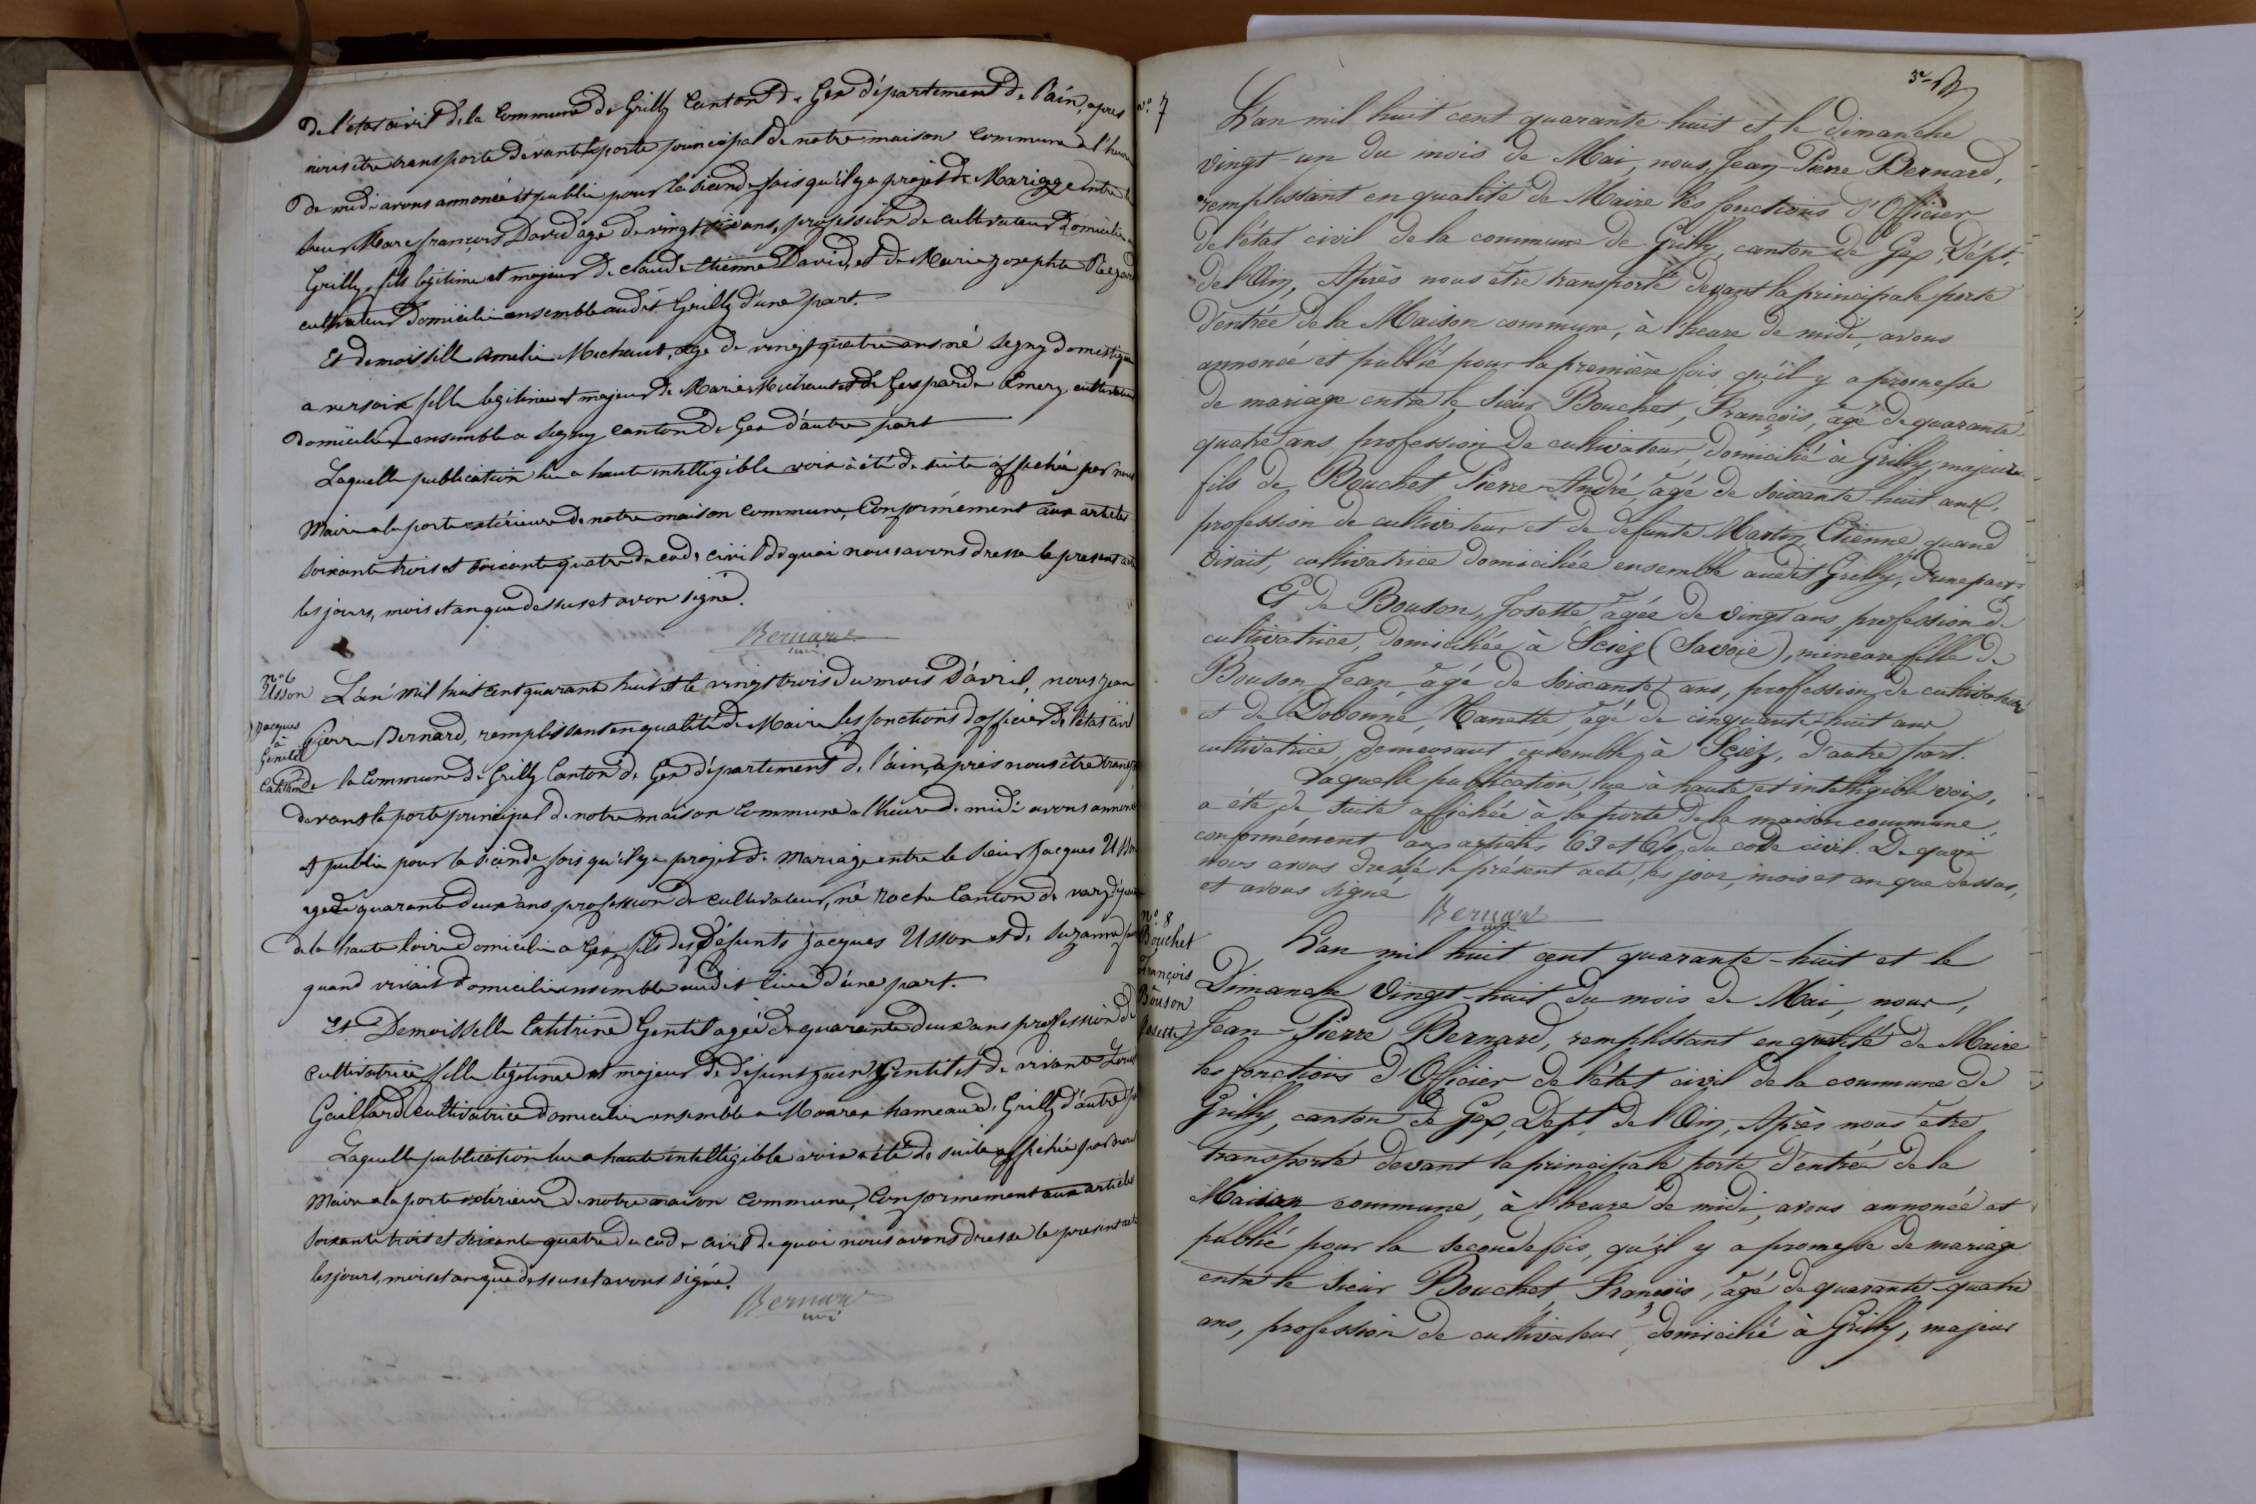 de l'état civil de la Commune de Grilly Canton de Gex département de l'ain, apres
nous être transporte devant la porte principal de notre maison Commune a l'heure
de midi avons annoncé et publié pour la seconde fois qu'il y a projet de Mariage entre le
sieur Marc françois David agé de vingt six ans, profession de cultivateur domicilié a
Grilly, fils légitime et majeur de claude Etienne David, et de Marie Josephte
cultivateur domicilié ensemble audit Grilly d'une part.
Et demoiselle Amelie Michaut, age de vingt quatre ans né Segny domestique
a versoix fille legitime et majeur de Marie Michaut et de Gasparde Emery cultivateur
domicilié ensemble a Segny canton de Gex d'autre part
Laquelle publication lu a haute intelligible voix à été de suite affichée par nous
Maire a la porte extérieure de notre maison commune, Conformément aux articles
soixante trois et soixante quatre du code civil de quoi nous avons dresse le present acte
les jours, mois et an que dessus et avon signé.
Bernard
mre
n° 6
Usson
Jacques
à
Gentil
Catitrine
L'an mil huit cent quarante huit et le vingt trois du mois d'avril, nous Jean
Pierre Bernard, remplissant en qualité de Maire les fonctions d'officier de l'état civil
de la Commune de Grilly Canton de Gex département de l'ain, après nous être transp
devant la porte principal de notre maison Commune a l'heure de midi avons annoncé
et publié pour la seconde fois qu'il y a projet de Mariage entre le sieur Jacques Usson
agé de quarante deux ans profession de cultivateur, né Roche Canton de
de la haute loire domicilié a Gex fils des défunts Jacques Usson et de Suzanne
quand vivait domicilié ensemble audit lieu d'une part.
Et Demoisselle Catitrine Gentil agée de quarante deux ans profession de
cultivatrice fille légitime et majeur de défunt Gentil et de vivante
Gaillard cultivatrice domicilié ensemble a Mourex hameau de Grilly d'autre part
Laquelle publication lu a haute intelligible voix a été de suite affichée par nous
Maire a la porte extérieur de notre maison commune, Conformement aux articles
soixante trois et soixante quatre du code civil de quoi nous avons dresse le present acte
les jours, mois et an que dessus et avons signé.
Bernard
mre
n° 7
L'an mil huit cent quarante-huit et le dimanche
vingt-un du mois de Mai, nous, Jean-Pierre Bernard,
remplissant en qualité de Maire les fonctions d'Officier
de l'état civil de la commune de Grilly, canton de Gex, Dépt.
de l'Ain, Après nous être transporté devant la principale porte
d'entrée de la Maison commune, à l'heure de midi, avons
annoncé et publié pour la première fois, qu'il y a promesse
de mariage entre le sieur Bouchet, François, âgé de quarante
quatre ans, profession de cultivateur, domicilié à Grilly, majeur
fils de Bouchet Pierre-André, âgé de soixante-huit ans,
profession de cultivateur et de défunte Martin Etienne quand
vivait, cultivatrice domiciliée ensemble audit Grilly, d'une part.
Et de Bouson, Josette, âgée de vingt ans, profession de
cultivatrice, domiciliée à Sciez (Savoie), mineure fille de
Bouson, Jean, âgé de soixante ans, profession de cultivateur
et de Dobonne, Nanette, âgé de cinquante-huit ans
cultivatrice, demeurant ensemble à Sciez, d'autre part.
Laquelle publication, lue à haute et intelligible voix,
a été de suite affichée à la porte de la maison commune,
conformément aux articles 63 et 64 du code civil. De quoi
nous avons dressé le présent acte, les jour, mois et an que dessus,
et avons signé
Bernard
mre
n° 8
Bouchet
François
Bouson
Josette
L'an mil huit cent quarante-huit et le
Dimanche vingt-huit du mois de Mai, nous,
Jean-Pierre Bernard, remplissant en qualité de Maire
les fonctions d'Officier de l'état civil de la commune de
Grilly, canton de Gex, Dépt. de l'Ain, Après nous être
transporté devant la principale porte d'entrée de la
Maison commune, à l'heure de midi, avons annoncé et
publié pour la seconde fois, qu'il y a promesse de mariage
entre le sieur Bouchet, François, âgé de quarante-quatre
ans, profession de cultivateur, domicilié à Grilly, majeur